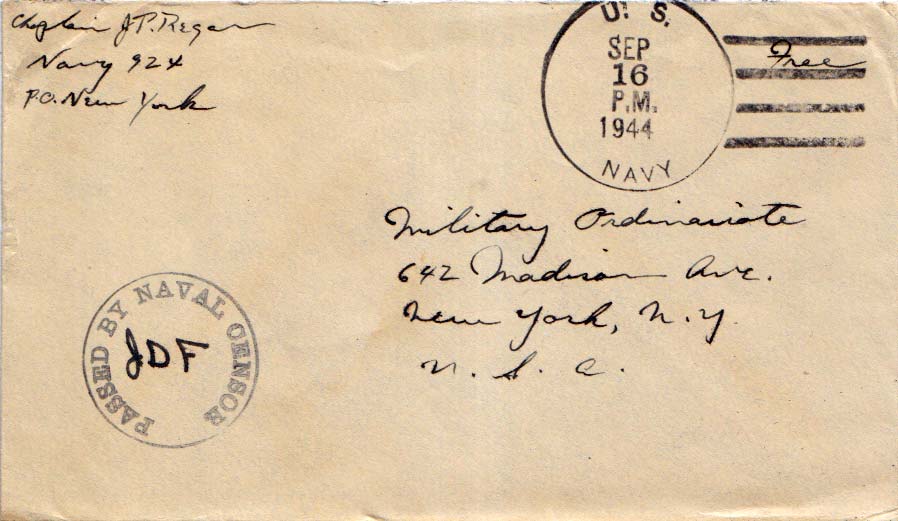 Chaplain J.P. Regan
Navy 924
P.O. New York
U. S.
SEP
16
P.M.
1944
NAVY
Free
Military Ordinariate
642 Madison Ave.
New York, N.Y.
U. S. A.
PASSED BY NAVAL CENSOR
JDF